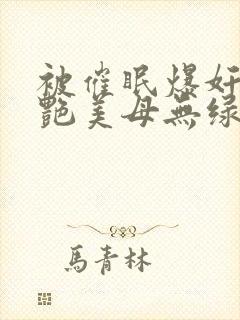 被催眠爆奸
艷美母無綠
馬青林